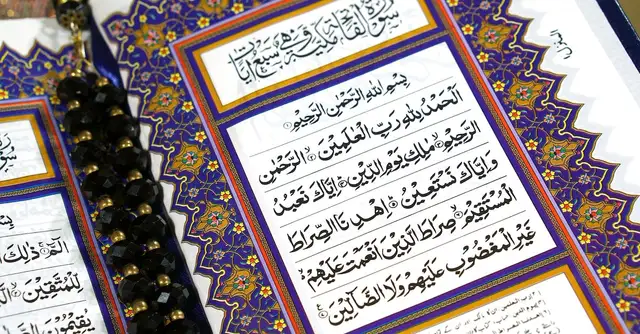 سُورَةُ الْفَاتِحَةِ مَكِّيَّةٌ وَهِيَ سَبْعُ آيَاتٍ
بِسْمِ اللهِ الرَّحْمٰنِ الرَّحِيمِ
اَلْحَمْدُ لِلّٰهِ رَبِّ الْعَالَمِينَ الرَّحْمٰنِ
الرَّحِيمِ مٰلِكِ يَوْمِ الدِّينِ اِيَّاكَ نَعْبُدُ
وَاِيَّاكَ نَسْتَعِينُ اِهْدِنَا الصِّرَاطَ
الْمُسْتَقِيمَ صِرَاطَ الَّذِينَ اَنْعَمْتَ عَلَيْهِمْ
غَيْرِ الْمَغْضُوبِ عَلَيْهِمْ وَلَا الضَّالِّينَ
سُورَةُ
بِسْمِ
الٓمٓ ذٰلِكَ
لِلْمُتَّقِينَ
يُقِيمُونَ